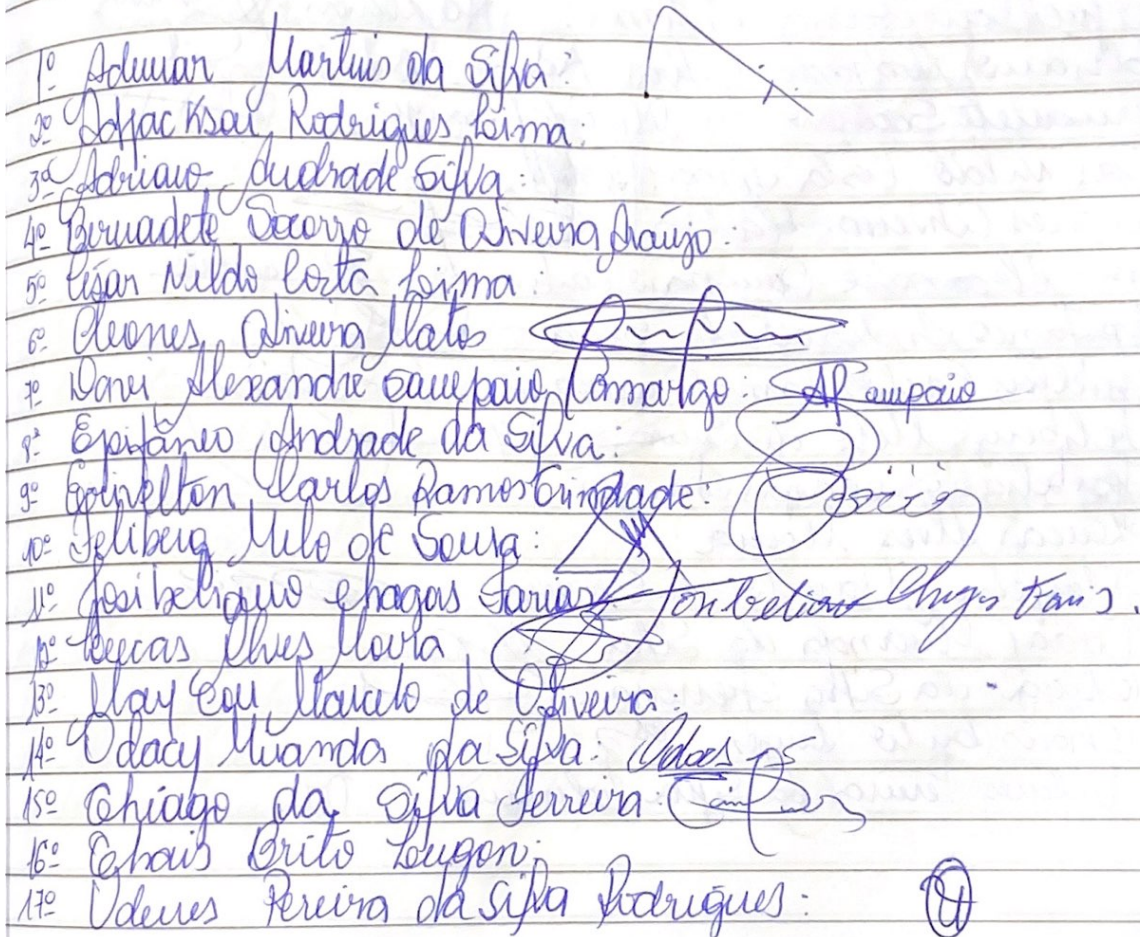 1º Ademar Martins da Silva:
2º Adjackson Rodrigues Lima:
3º Adriano Andrade Silva:
4º Bernadete Socorro de Oliveira Araújo:
5º César Nildo Costa Lima:
6º Cleones Oliveira Matos
7º Davi Alexandre Sampaio Camargo: Sampaio
8º Epifâneo Andrade da Silva:
9º Carlos Ramos Trindade:
10º Feliberg Melo de Sousa:
11º Chagas Farias Chagas
12º Lucas Alves Moura
13º Marcelo de Oliveira:
14º Odacy Miranda da Silva:
15º Thiago da Silva Ferreira
16º Thais Brito Lougon:
17º Udenes Pereira da Silva Rodrigues: